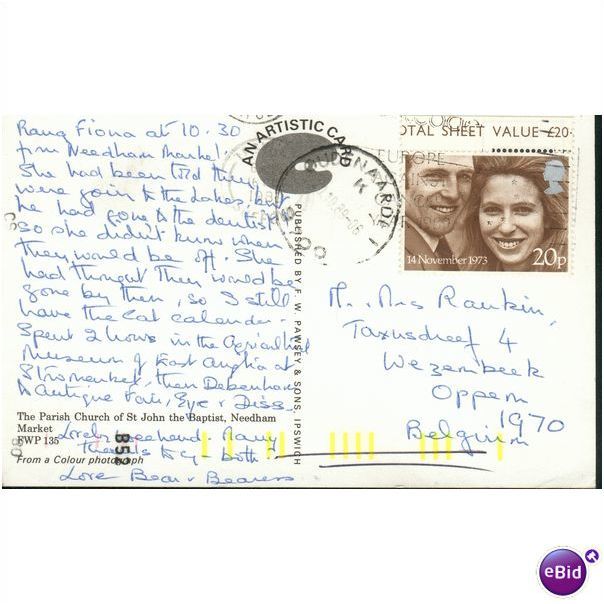 Rang Fiona at 10.30
from Needham Market.
She had been told they
were goin to the Lakes, but
he had gone to the dentist
so she didn't know when
they would be off. She
had thought they would be
gone by then, so I still
have the cat calender.
Spent 2 hours in the Agricultral
Museum of East Anglia at
Stowmarket, then Debenham
& Antique Fair, Eye & Diss.
The Parish Church of St John the Baptist, Needham
Market
FWP 135
From a Colour photograph
Lovely weekend. Many
thanks to you both
Love Bear & Bearess
B52
AN ARTISTIC CARD
PUBLISHED BY F. W. PAWSEY & SONS, IPSWICH
OTAL SHEET VALUE £20·
EUROPE
14 November 1973
20p
Mr. Mrs Rankin,
Taxusdreef 4
Wezembeek
Oppem
1970
Belgium
eBid